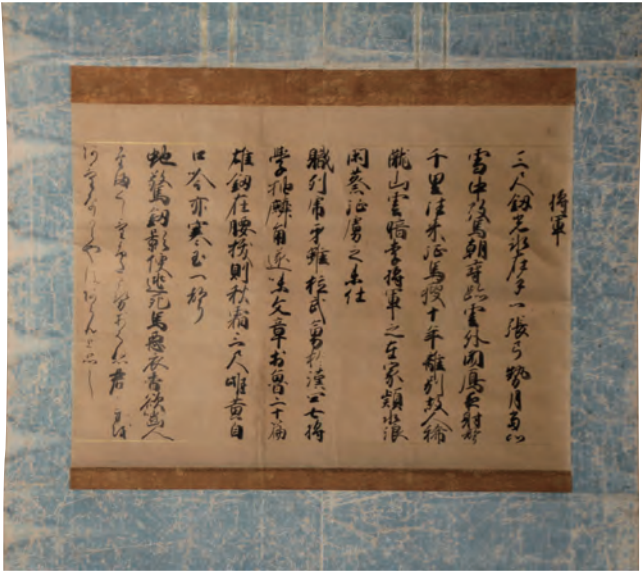 将軍
三尺釼光氷在手一張弓勢月當心
雪中放馬朝尋跡雲外聞鴻夜射聲
千里往来征馬痩十年離別故人稀
隴山雲暗李将軍之在家潁水浪
閑蔡征虜之未仕
職列虎牙雖拉武勇於漢四七将
學抽麟角遂味文章於魯二十篇
雄釼在腰抜則秋霜三尺雌黄自
口吟亦寒玉一聲
蛇驚釼影便逃死馬悪衣香欲噛人
君
あけなからやはあらんと思し